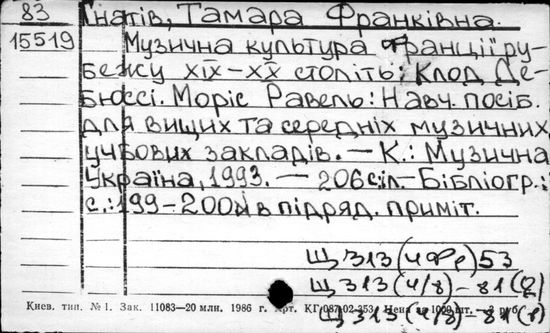 83 Гнатів, Тамара Франківна.
15519 Музична культура Франції ру-
бежу XIX–XX століть: Клод Де-
бюссі. Моріс Равель: Навч. посіб.
для вищих та середніх музичних
учбових закладів. — К.: Музична
Україна, 1993. — 206 с.іл. — Бібліогр.:
с.: 199–200 й в підряд. приміт.
Щ 313(4Фр)53
Щ 313(4/8)-81(2)
Щ 313(4/8)-81(
Киев. тип. № 1. Зак. 11083—20 млн. 1986 г. Арт. КГ-087-02-353. Цена за 1000 шт. — 3 руб.